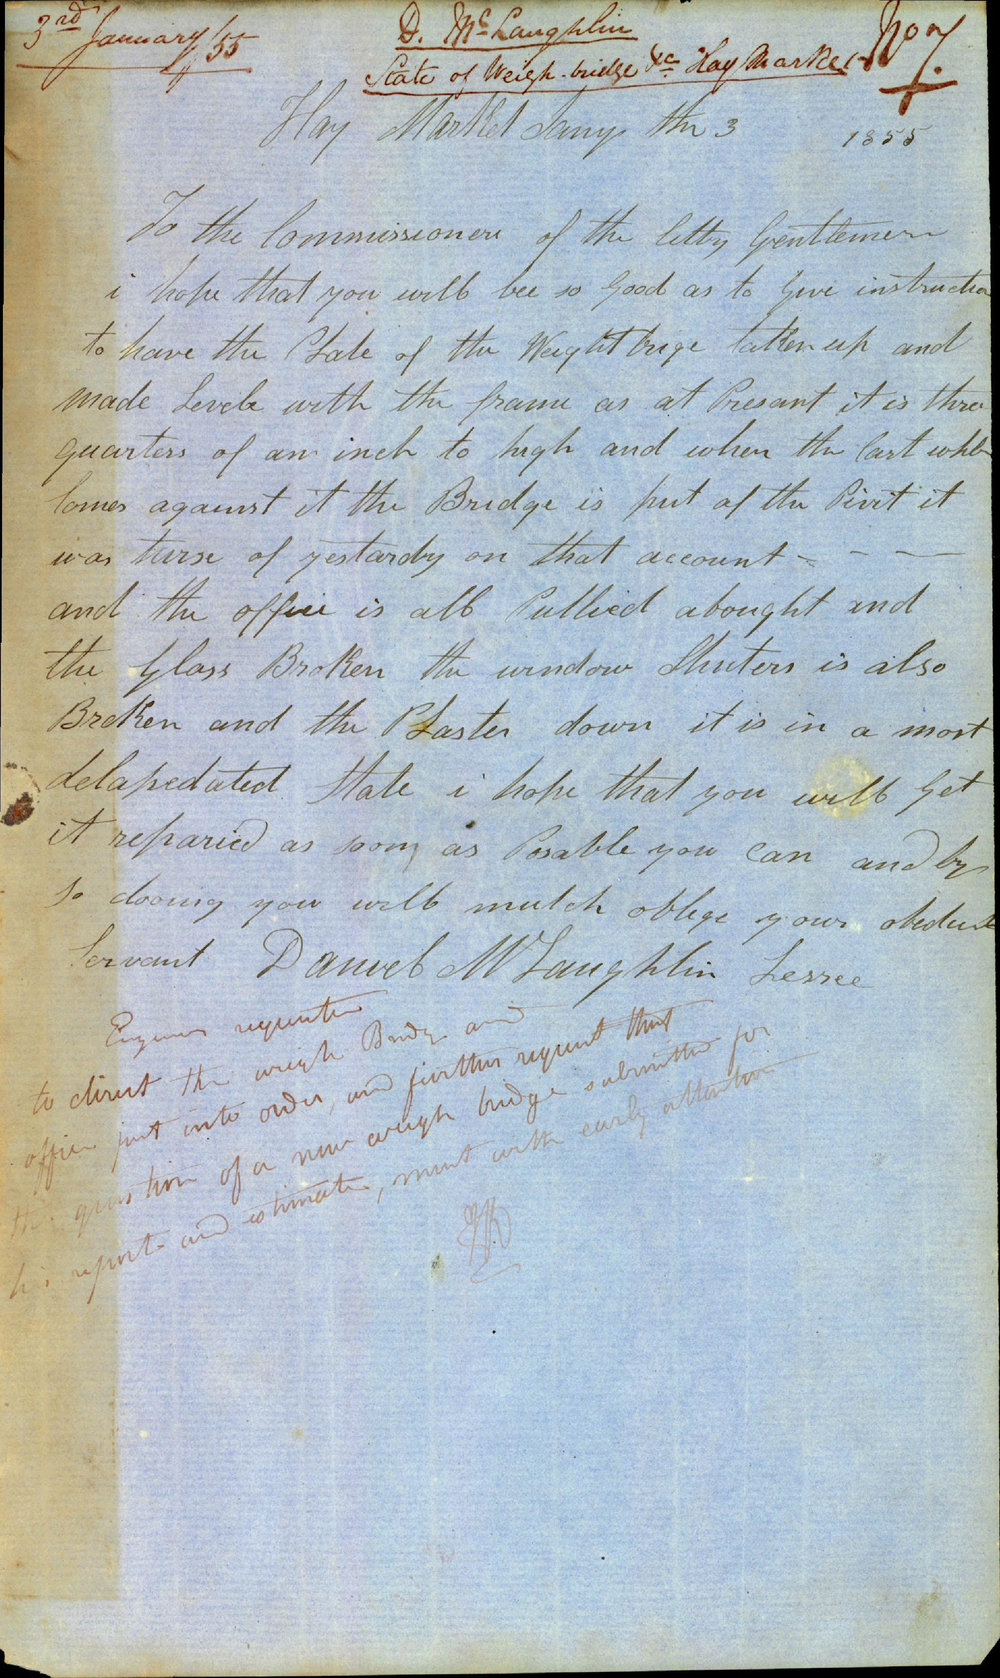 3rd January/55
D. McLaughlin
State of Weigh-bridge &c Hay Market
No 7.
Hay Market Jany the 3 1855
To the Commissioners of the Citty Gentlemen
i hope that you will bee so Good as to Give instruction
to have the Plate of the Weight brige taken up and
made Levele with the frame as at Presant it is three
quarters of an inch to high and when the Cart while
Comes against it the Bridge is put of the Pivit it
was turse of yestardy on that account - - -
and the office is all Pullied abought and
the Glass Broken the window Shuters is also
Broken and the Plaster down it is in a most
delapedated State i hope that you will Get
it reparied as soon as Posable you can and by
so dooing you will mutch oblege your obedient
Servant Daniel McLaughlin Lessee
Engineer requested
to direct the weigh Bridge and
office put into order, and further request that
the question of a new weigh bridge submitted for
his report and estimate, meet with early attention